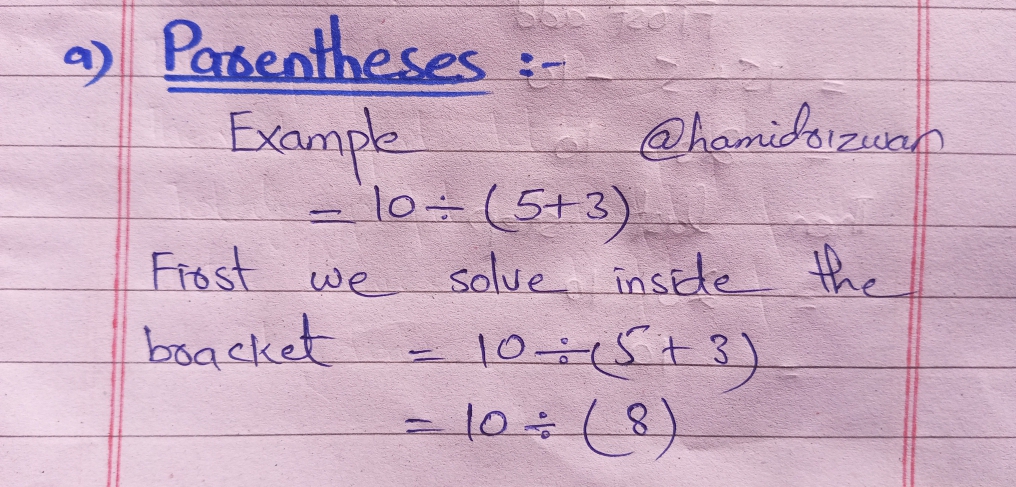 a) Parentheses :-
Example @hamidrizwan
= 10 ÷ (5+3)
First we solve inside the
bracket = 10 ÷ (5 + 3)
= 10 ÷ (8)